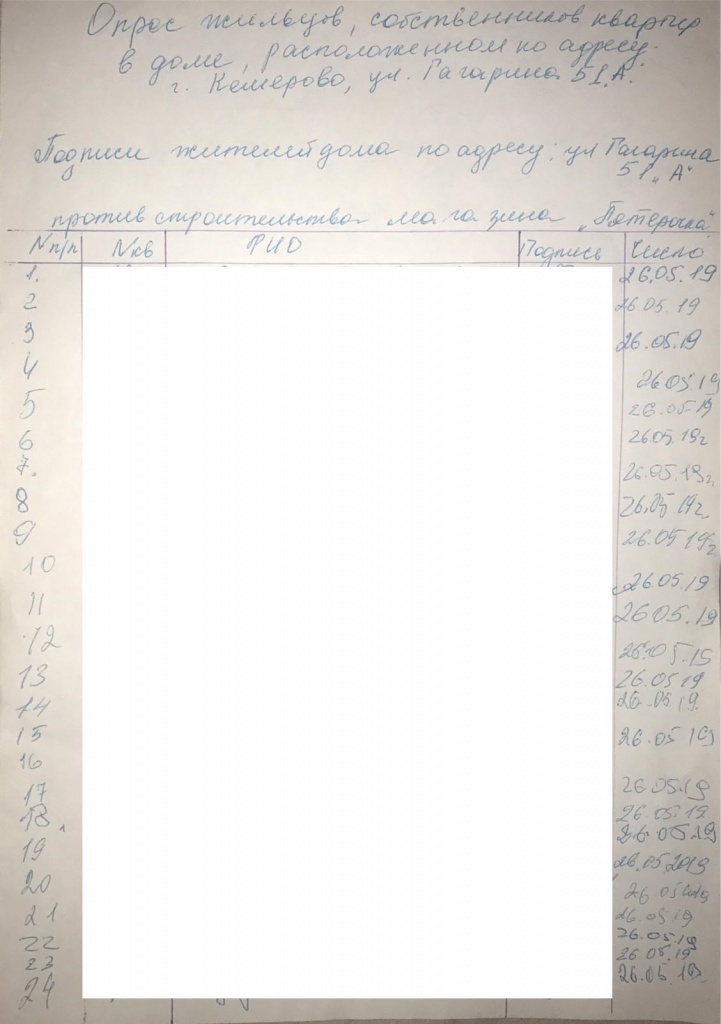 Опрос жильцов, собственников квартир
в доме, расположенном по адресу:
г. Кемерово, ул. Гагарина 51.А.
Подписи жителей дома по адресу: ул Гагарина
51 „А"
против строительства магазина „Пятерочка"
N п/п N кв ФИО Подпись Число
1. 26.05.19
2 26.05.19
3 26.05.19
4 26.05.19
5 26.05.19
6 26.05.19г
7. 26.05.19г.
8 26.05.19г
9 26.05.19г
10 26.05.19
11 26.05.19
12 26.05.19
13 26.05.19
14 26.05.19.
15 26.05.19
16
17 26.05.19
18. 26.05.19
26.05.19
19 26.05.2019
20 26.05.2019
21 26.05.19
22 26.05.19
23 26.05.19
24 26.05.19